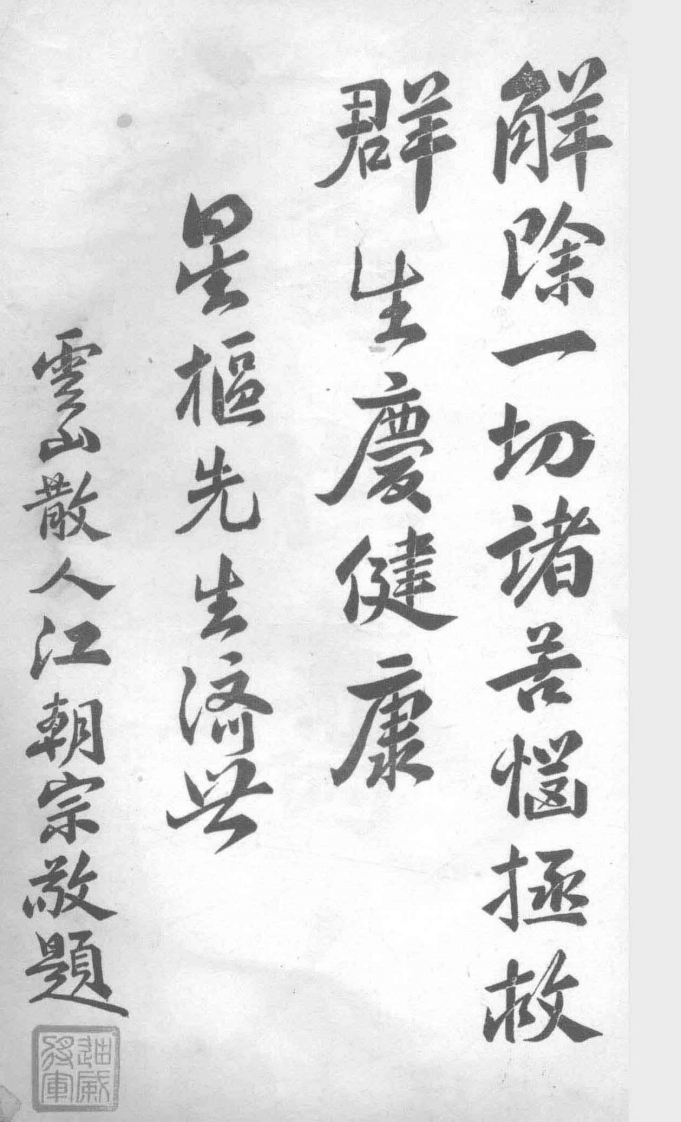 解除一切諸苦惱拯救
群生慶健康
星樞先生济世
雲山散人江朝宗敬題
迪威
将軍